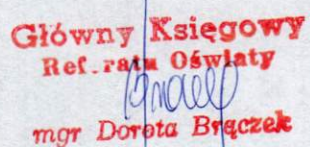 Główny Księgowy
Ref.ratu Oświaty
mgr Dorota Brączek